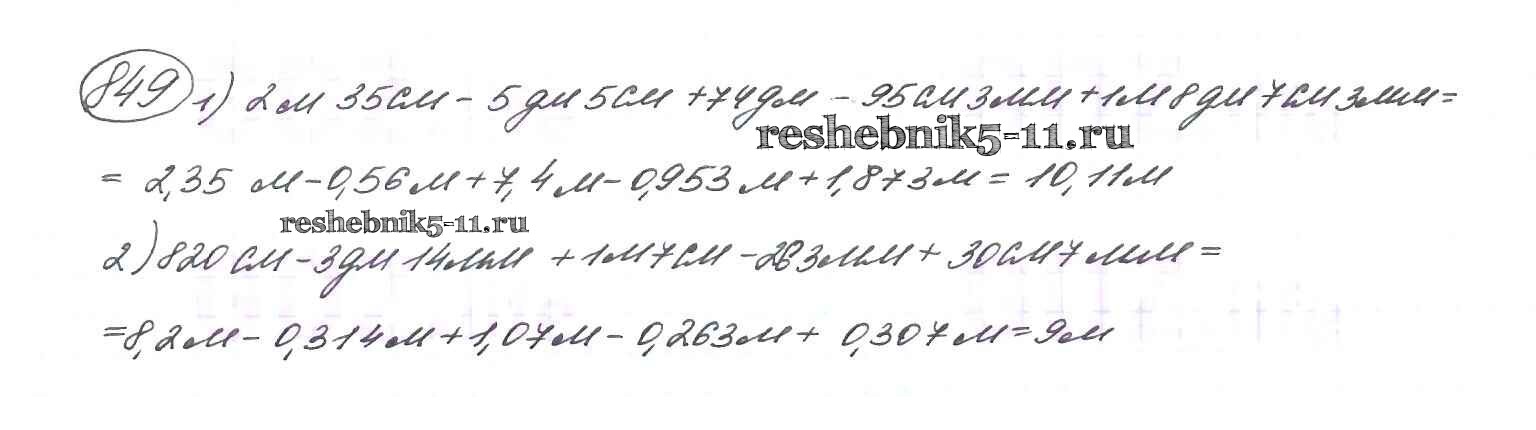 849 1) 2м 35см - 5дм 5см + 74дм - 95см 3мм + 1м 8дм 7см 3мм =
reshebnik5-11.ru
= 2,35 м - 0,56м + 7,4м - 0,953м + 1,873м = 10,11м
reshebnik5-11.ru
2) 820см - 3дм 14мм + 1м 7см - 263мм + 30см 7мм =
= 8,2м - 0,314м + 1,07м - 0,263м + 0,307м = 9м